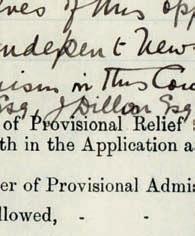 ves of this opp
ndependent News
nism in this Cou
Esq, J Dillon Esq
of Provisional Relief
th in the Application a
er of Provisional Admi
llowed, - -